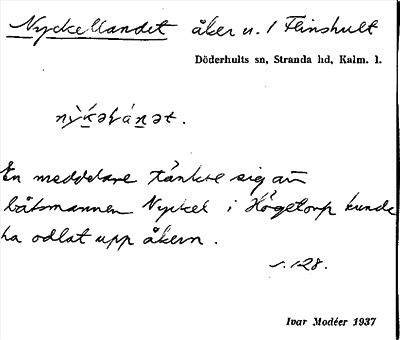 Nyckellandet åker u. 1 Flinshult
Döderhults sn, Stranda hd, Kalm. l.
En meddelare tänkte sig att
båtsmannen Nyckel i Högetorp kunde
ha odlat upp åkern.
s. 128.
Ivar Modéer 1937